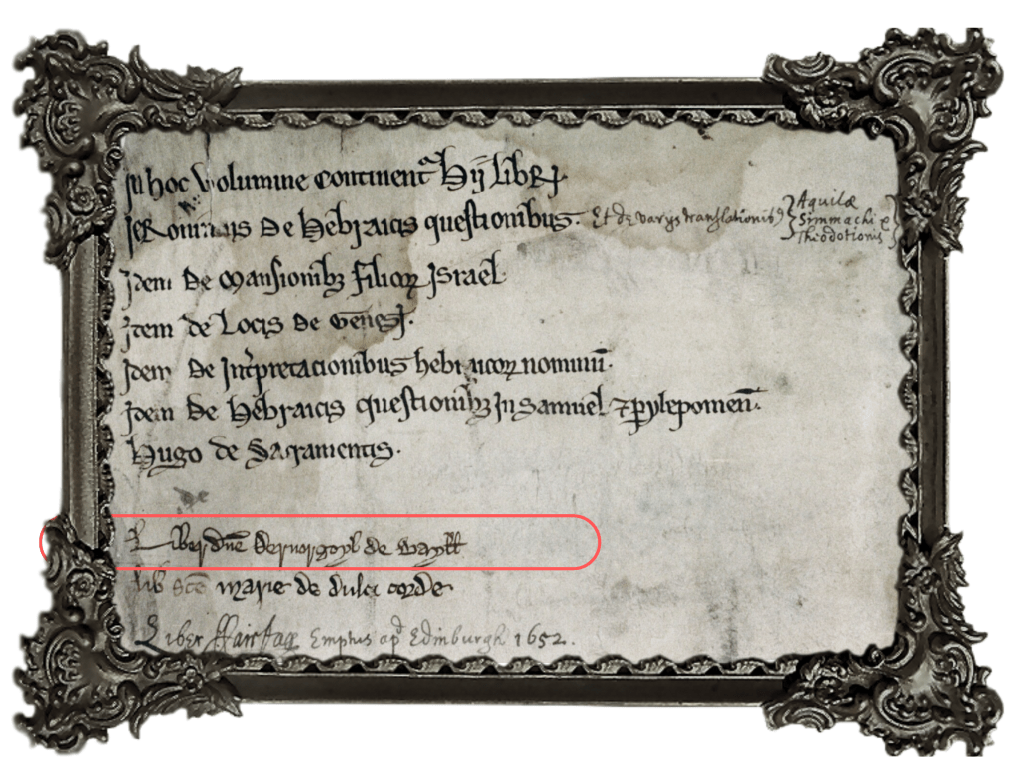 In hoc volumine continent hij libri.
Ieronimus de hebraicis questionibus. Et de varijs translationib9 } Aquilæ Simmachi & Theodotionis }
Idem de mansionib3 filior Israel
Idem de locis de genesi.
Idem de Int'pretacionibus hebraicor nominu.
Idem de hebraicis questionib3 In Samuel 7 pylepomen.
Hugo de Sacramentis.
Liber dne deruorgoyl de wayll
lib sce marie de dulci corde
Liber ffairfax Emptus apd Edinburgh 1652.